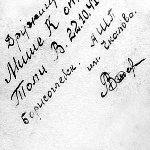 Дружищ
Мише К от
Толи В 22.10.42
Борисоглебск АШП
им. Чкалова.